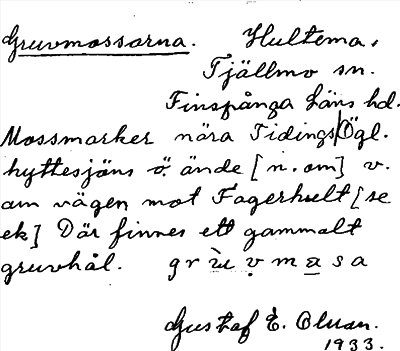 Gruvmossarna. Hultema,
Tjällmo sn.
Finspånga läns hd.
Mossmarker nära Tidings Ögl.
hyttesjöns ö. ände [n. om] v.
om vägen mot Fagerhult [se
ek] Där finnes ett gammalt
gruvhål. grù̀ṿmasa
Gustaf E. Olsson.
1933.